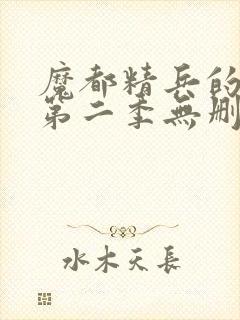 魔都精兵的
第二季無刪
水木天長